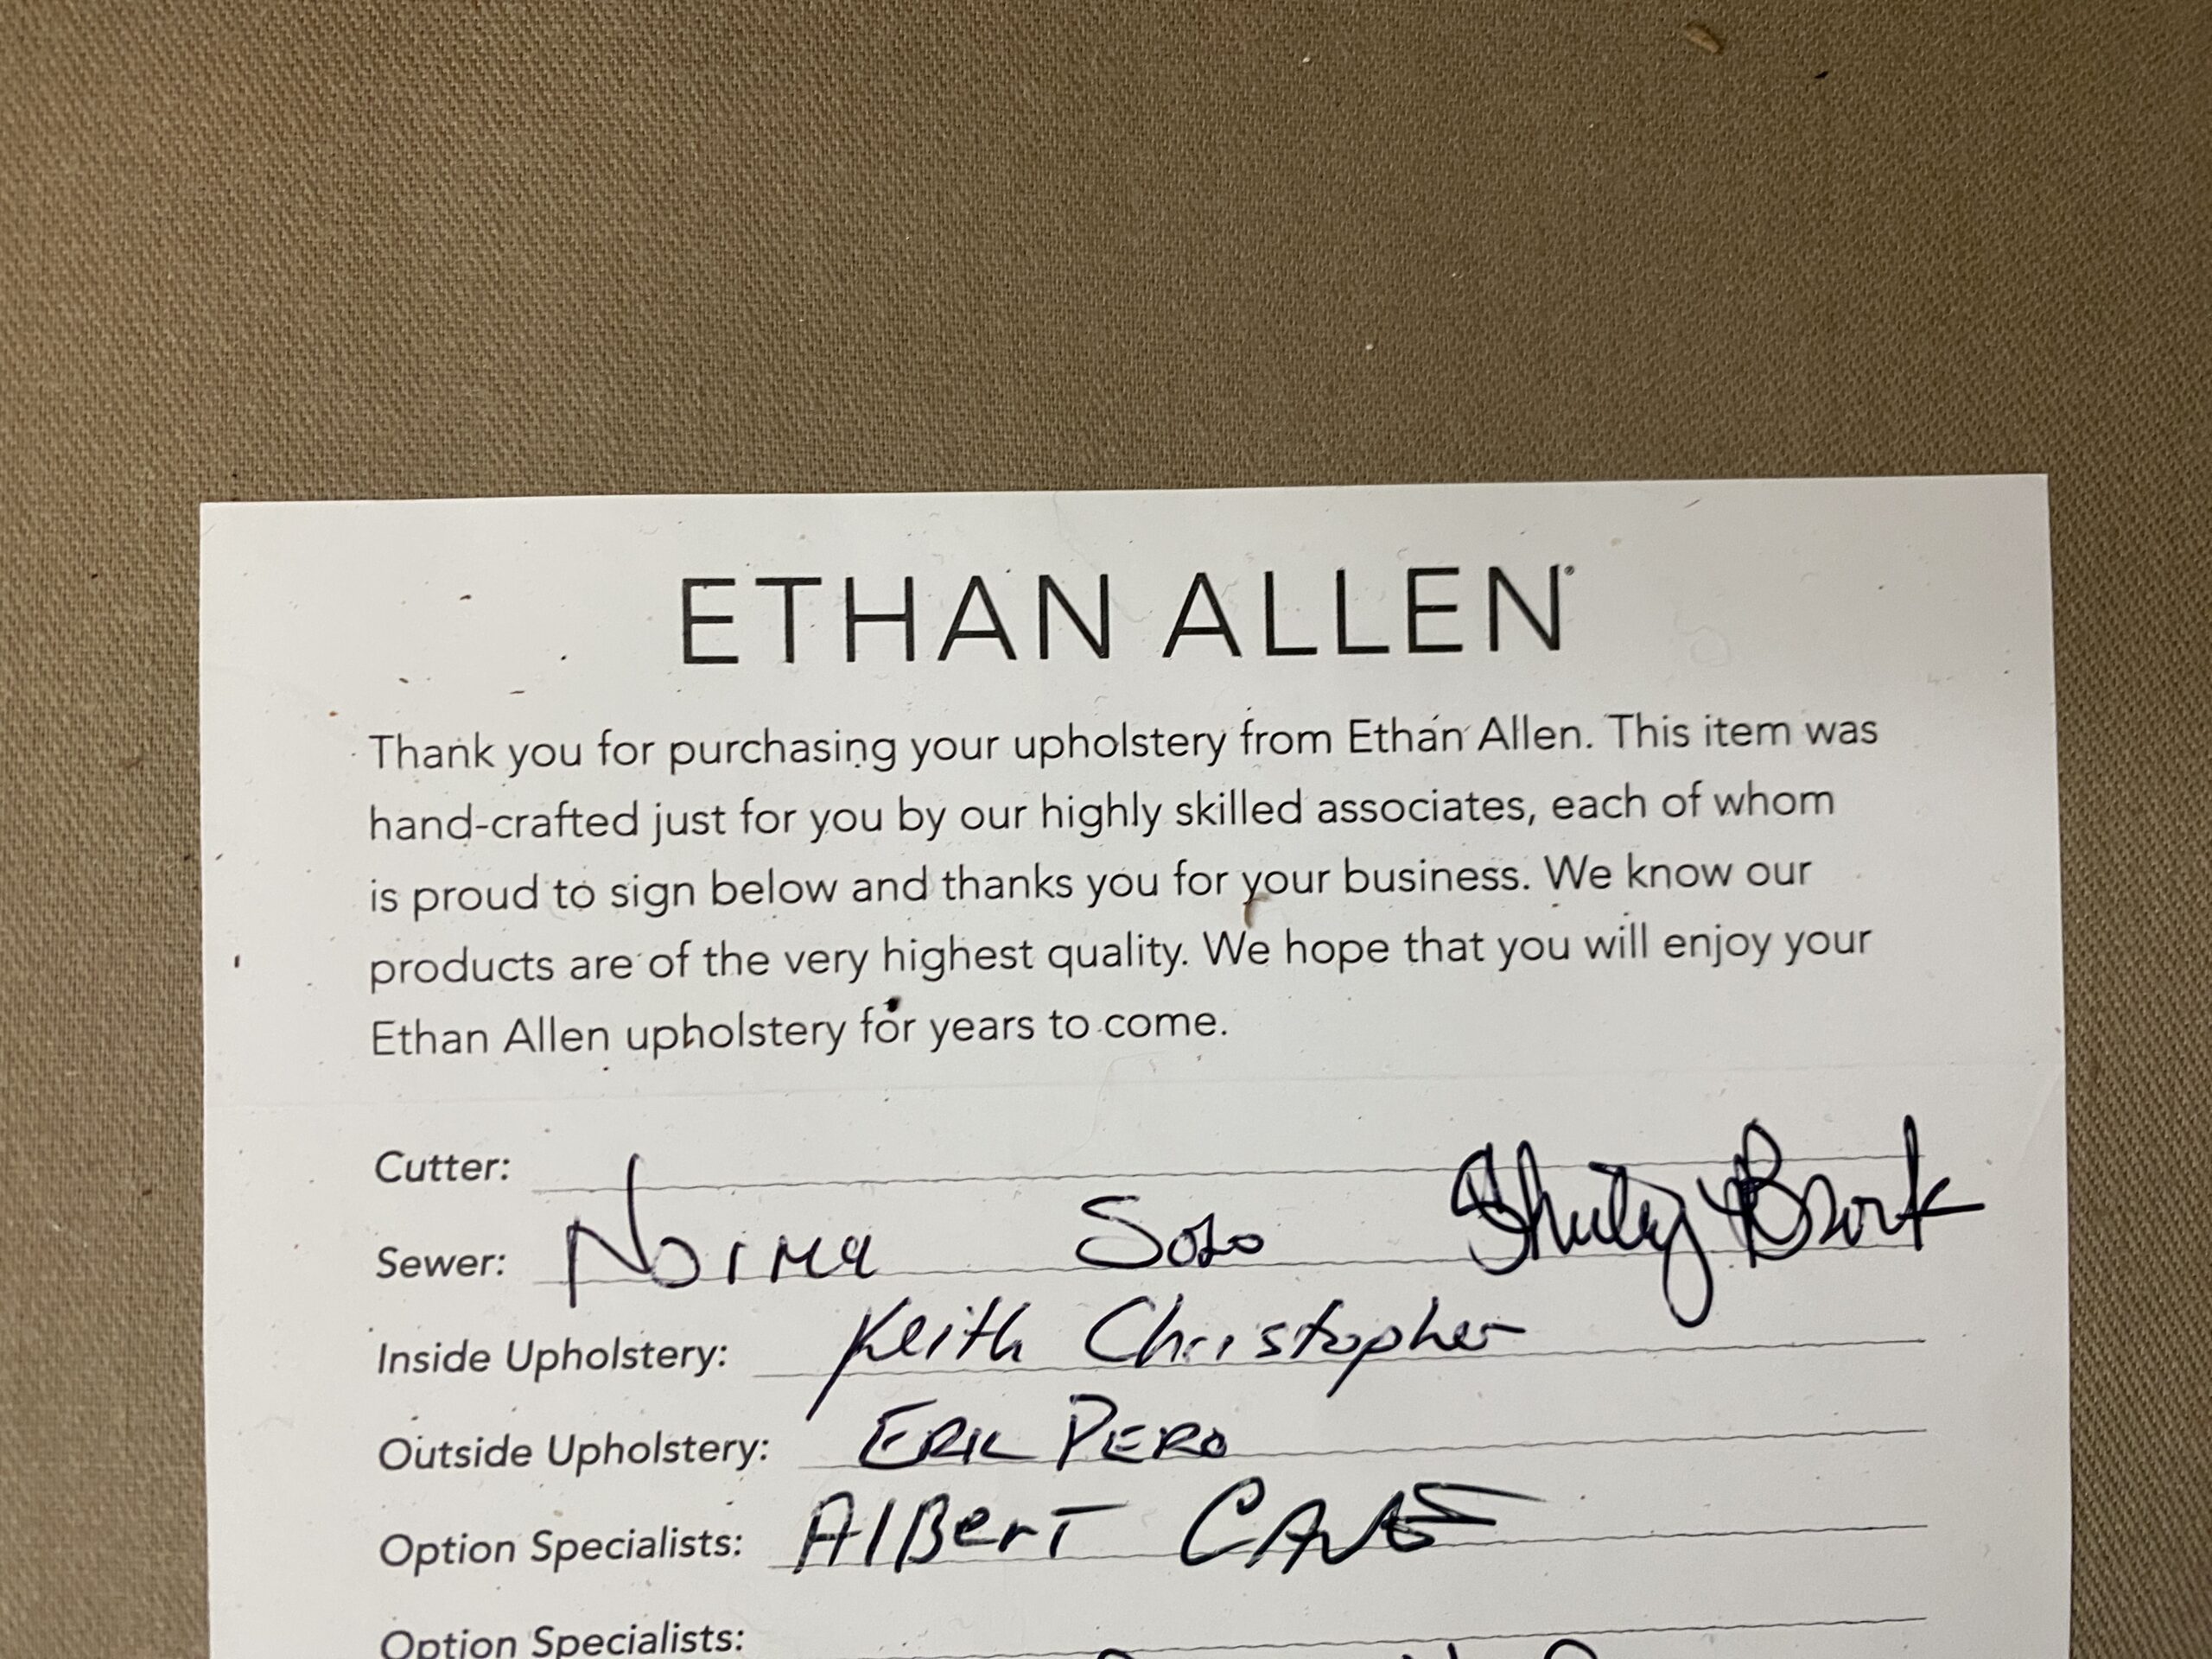 ETHAN ALLEN®
Thank you for purchasing your upholstery from Ethan Allen. This item was
hand-crafted just for you by our highly skilled associates, each of whom
is proud to sign below and thanks you for your business. We know our
products are of the very highest quality. We hope that you will enjoy your
Ethan Allen upholstery for years to come.
Cutter:
Sewer: Norma Soto
Inside Upholstery: Keith Christopher
Outside Upholstery: ERIC PERO
Option Specialists: AlBerT
Option Specialists: